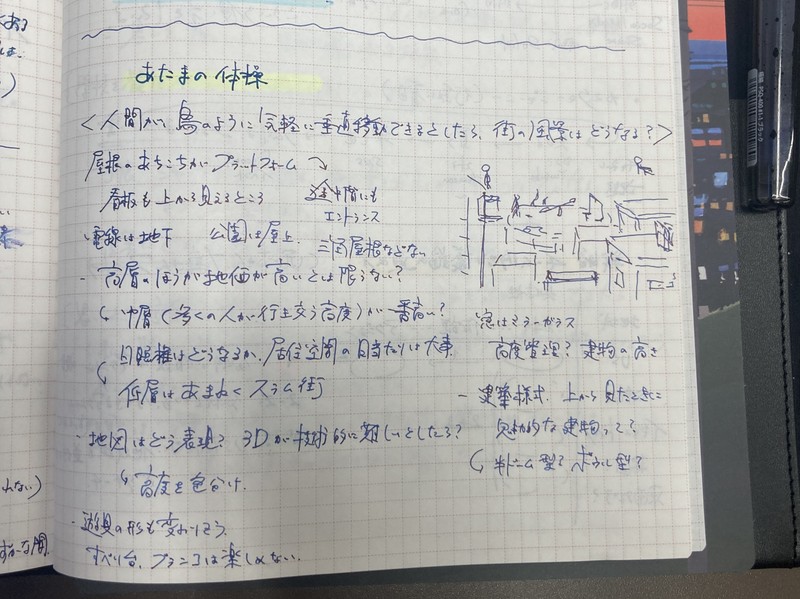 あたまの体操
<人間が鳥のように気軽に垂直移動できるとしたら、街の風景はどうなる?>
屋根のあちこちがプラットフォーム
看板も上から見えるところ
途中階にも
エントランス
・電線は地下 公園は屋上 三角屋根などない
- 高層のほうが地価が高いとは限らない?
中層(多くの人が行き交う高度)が一番高い?
日照権はどうなるか、居住空間の日当たりは大事
低層はあまねくスラム街
・地図はどう表現? 3Dが技術的に難しいとしたら?
高度を色分け
・遊具の形も変わりそう。
すべり台、ブランコは楽しめない。
窓はミラーガラス
高度管理? 建物の高さ
- 建築様式 上から見たときに
見動的な建物って?
半ドーム型? ボウル型?